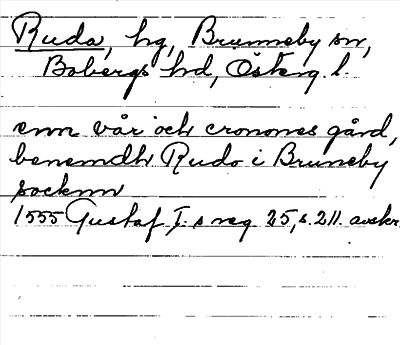 Ruda, hg, Brunneby sn,
Bobergs hd, Österg. l.
enn vår och cronones gård,
benemdh Rudo i Bruneby
socknn
1555 Gustaf I. s reg 25, s. 211. avskr.